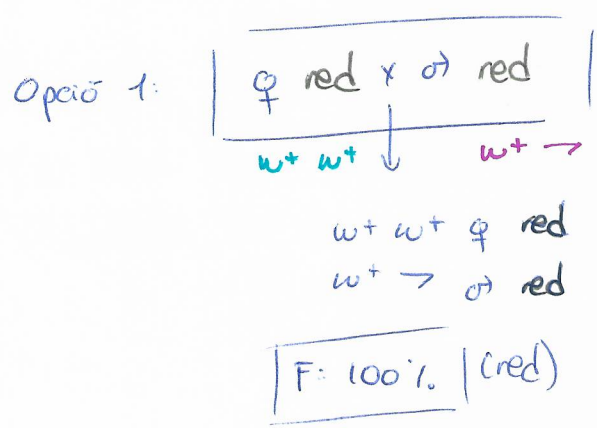 Opció 1: ♀ red x ♂ red
w+ w+ w+ ¬
w+ w+ ♀ red
w+ ¬ ♂ red
F: 100%. (red)